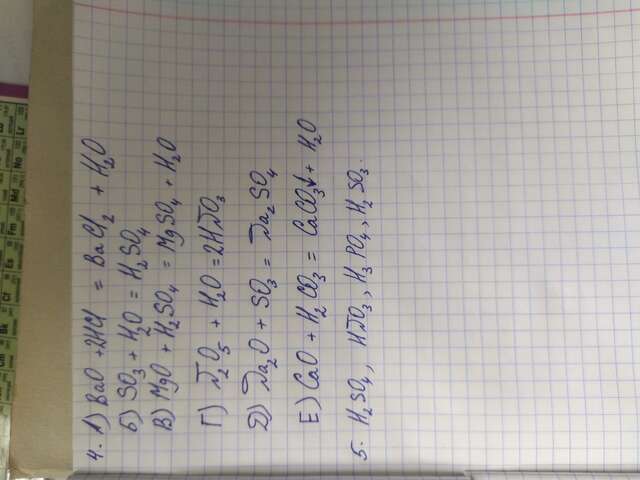 4. А) BaO + 2HCl = BaCl₂ + H₂O
Б) SO₃ + H₂O = H₂SO₄
В) MgO + H₂SO₄ = MgSO₄ + H₂O
Г) N₂O₅ + H₂O = 2HNO₃
Д) Na₂O + SO₃ = Na₂SO₄
Е) CaO + H₂CO₃ = CaCO₃↓ + H₂O
5. H₂SO₄, HNO₃, H₃PO₄, H₂SO₃.
Lr
No
Md
Fm
Es
Cf
Bk
Cm